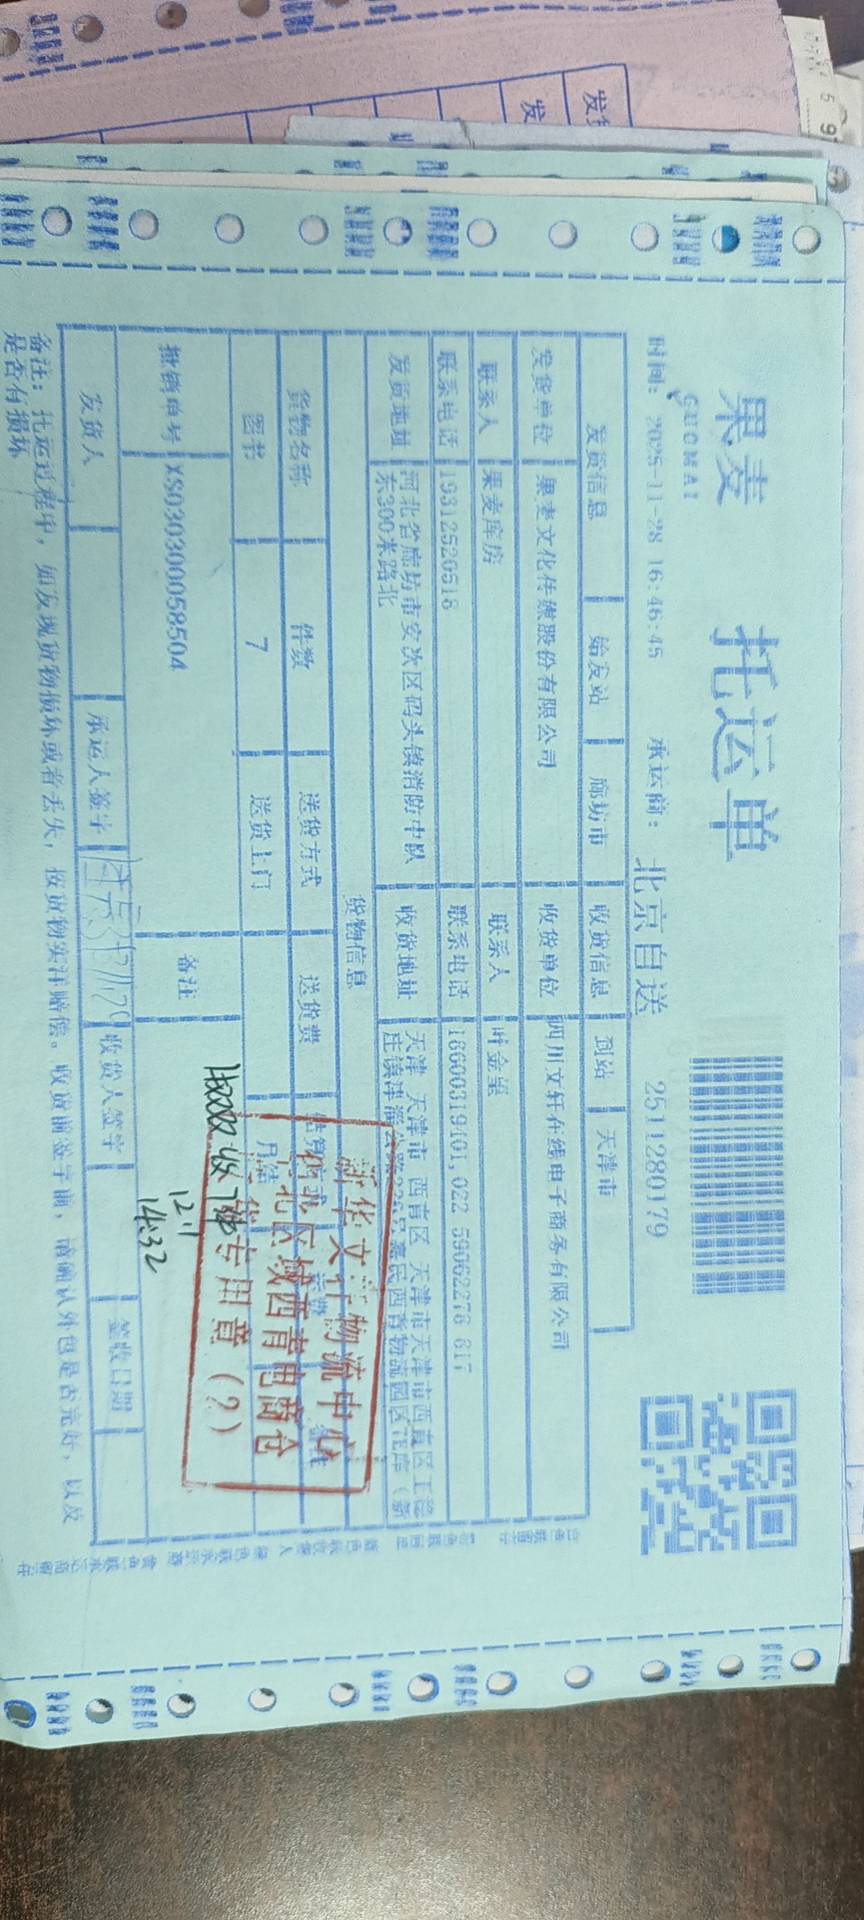 果麦 托运单
GUOMAI
时间: 2025-11-28 16:46:45 承运商: 北京自送 2511280179
发货信息 始发站 廊坊市 收货信息 到站 天津市
发货单位 果麦文化传媒股份有限公司 收货单位 四川文轩在线电子商务有限公司
联系人 果麦库房 联系人 叶金星
联系电话 19312520518 联系电话 18600319101,022 59062278 817
发货地址 河北省廊坊市安次区码头镇消防中队
东300米路北
收货地址 天津 天津市 西青区 天津市天津市西青区王稳
庄镇津淄公路226号嘉民西青物流园区
货物信息
货物名称 件数 送货方式 送货费 结算方式
图书 7 送货上门 月结
批销单号 XS030300058504 备注
发货人 承运人签字 收货人签字 签收日期
备注: 托运过程中, 如发现货物损坏或者丢失, 按货物实洋赔偿。收货前签字前, 请确认外包是否完好, 以及
是否有损坏
新华文轩物流中心
华北区域西青电商仓
收货专用章(2)
12.1
14:32